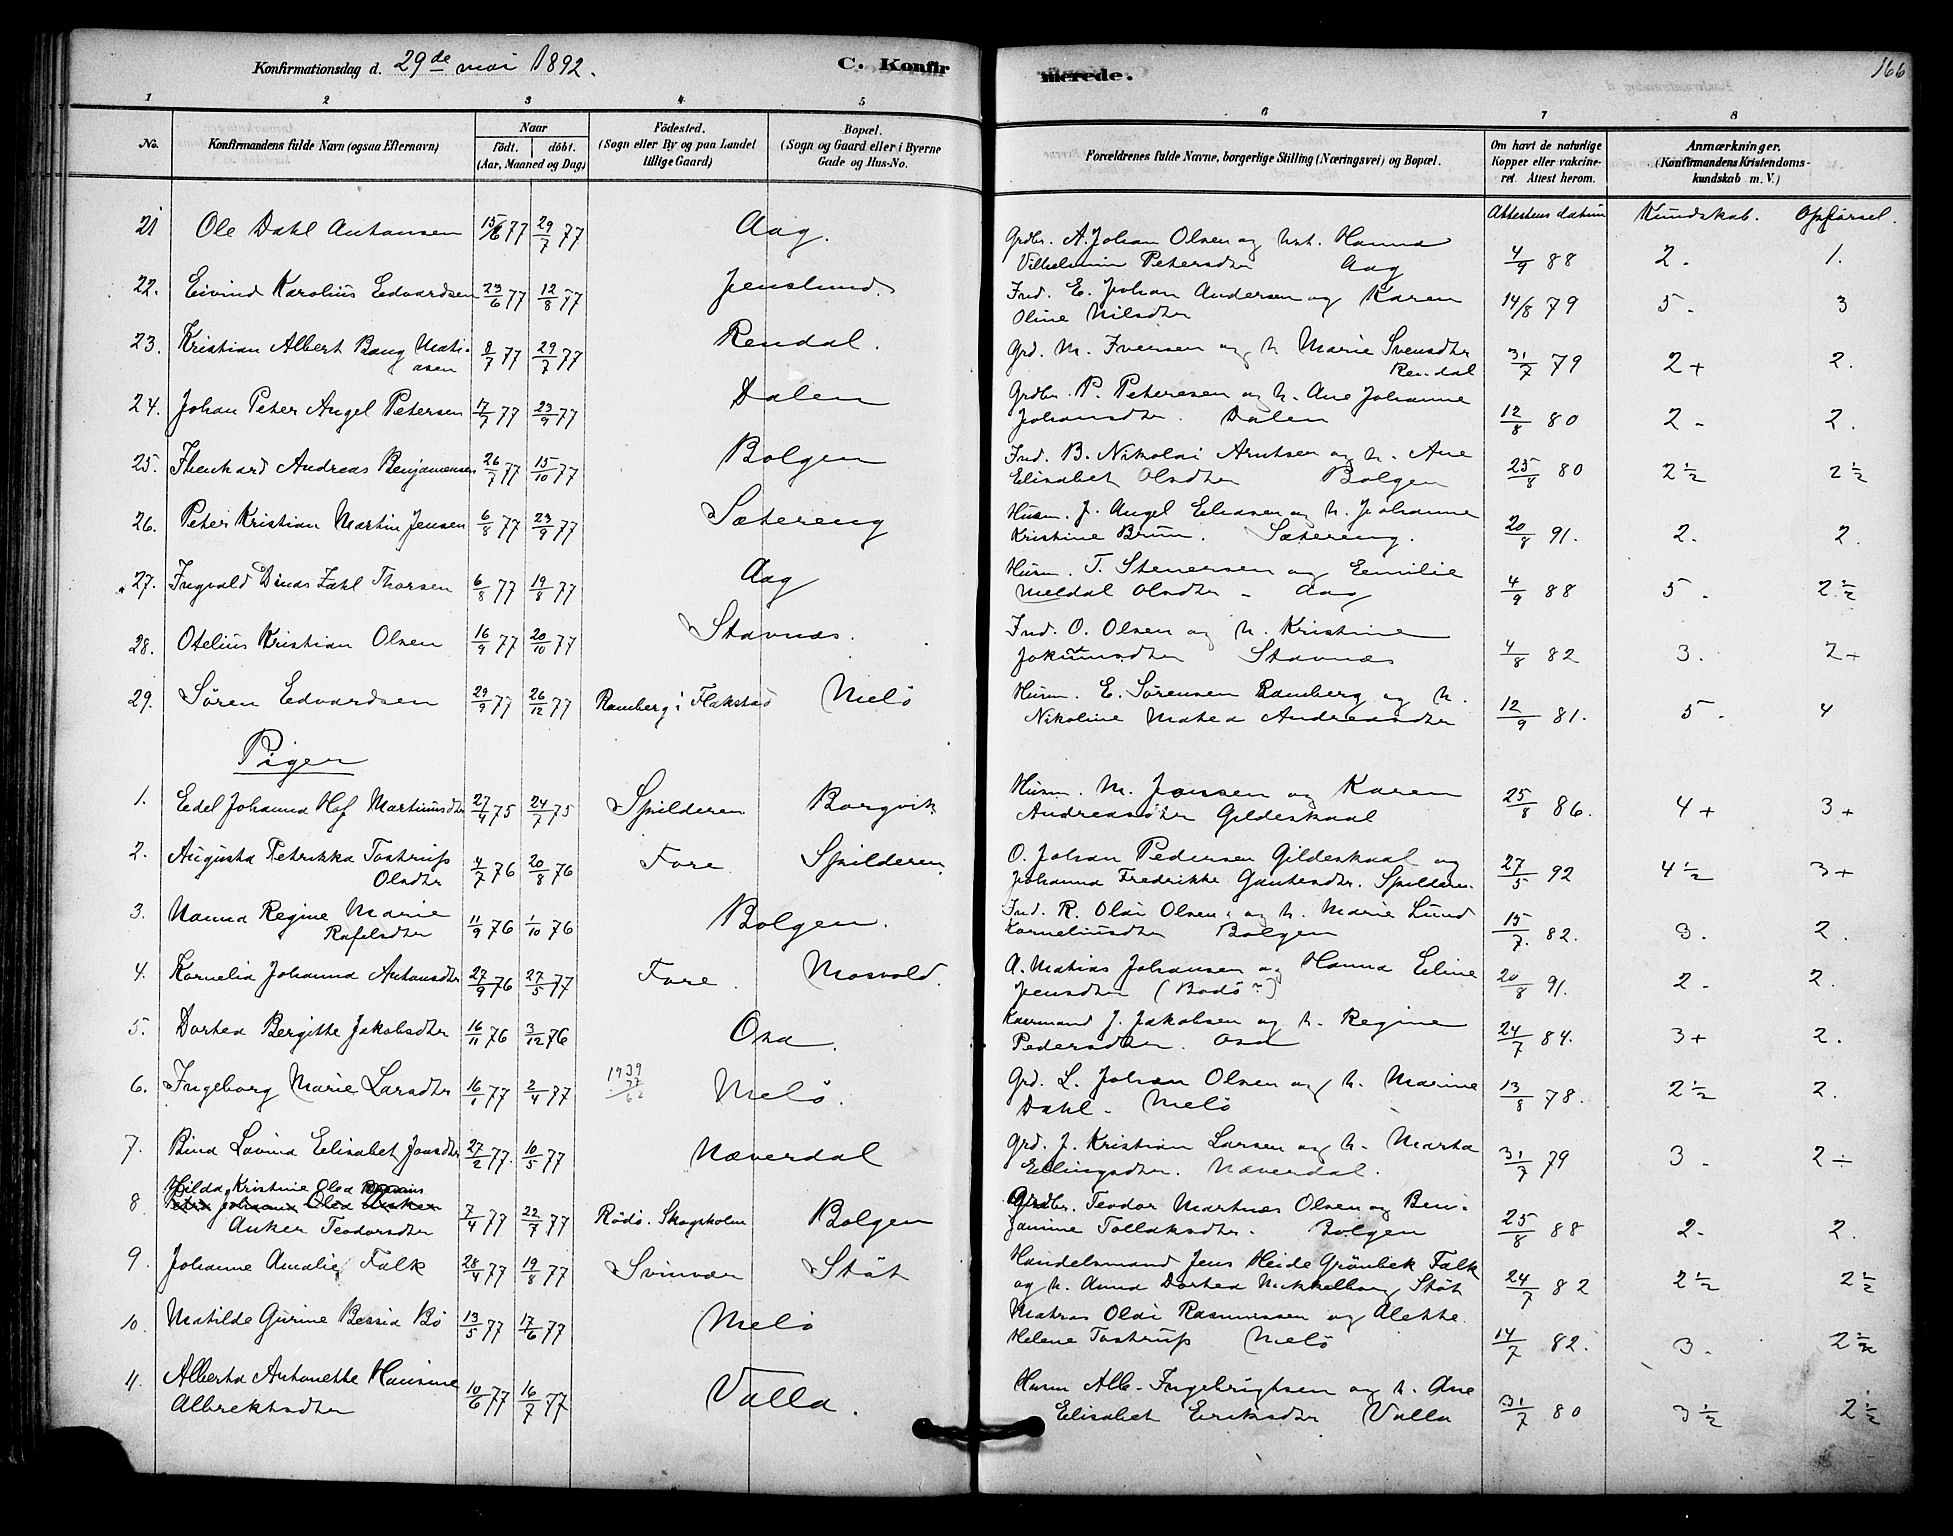 Konfirmationsdag d. 29de mai 1892.
C. Konfirmerede.
166
1 2 3 4 5 6 7 8
No.
Konfirmandens fulde Navn (ogsaa Efternavn)
Naar
Födt. döbt.
(Aar, Maaned og Dag)
Födested.
(Sogn eller By og paa Landet
tillige Gaard)
Bopæl.
(Sogn og Gaard eller i Byerne
Gade og Hus-No.
Forældrenes fulde Navne, borgerlige Stilling (Næringsvei) og Bopæl.
Om havt de naturlige
Kopper eller vakcine-
ret. Attest herom.
Anmærkninger.
(Konfirmandens Kristendoms-
kundskab m. V.)
Attestens datum Kundskab. Opförsel.
21 Ole Dahl Antonsen 15/6 77 29/7 77 Aag. Grdbr. A. Johan Olsen og hst. Hanna
Vilhelmine Petersdtr Aag 4/9 88 2. 1.
22. Eivind Karolius Edvardsen 23/6 77 12/8 77 Jenslund. Ind. E. Johan Andersen og Karen
Oline Nilsdtr 14/8 79 5. 3
23. Kristian Albert Bang Mati-
asen 8/7 77 29/7 77 Rendal. Grd. M. Iversen og h Marie Svensdtr
Rendal 31/7 79 2+ 2.
24. Johan Peter Angel Petersen 17/7 77 23/9 77 Dalen Grdbr. P. Petersen og h. Ane Johanne
Johansdtr. Dalen 12/8 80 2- 2.
25. Ihenhard Andreas Benjamensen 26/7 77 15/10 77 Bolgen Ind. B. Nikolai Arntsen og h. Ane
Elisabet Olsdtr Bolgen 25/8 80 2½ 2½
26. Peter Kristian Martin Jensen 6/8 77 23/9 77 Sætereng Husm. J. Angel Eliasen og h. Johanne
Kristine Brun. Sætereng. 20/8 91. 2. 2.
27. Ingvald Dinas Zahl Thorsen 6/8 77 19/8 77 Aag Husm. T. Stenersen og Eemilie
Meldal Olsdtr - Aag 4/9 88 5. 2½
28. Otelius Kristian Olsen 16/9 77 20/10 77 Stavnæs. Ind. O. Olsen og h. Kristine
Jokumsdtr Stavnæs 4/8 82 3. 2+
29. Sören Edvardsen 29/9 77 26/12 77 Ramberg i Flakstad Melö Husm. E. Sörensen Ramberg og h.
Nikoline Matea Andreasdtr 12/9 81. 5. 4
Piger
1. Edel Johanna Hof Martinusdtr 27/4 75 24/7 75 Spilderen Borgvik Husm. M. Jonssen og Karen
Andreasdtr Gildeskaal 25/8 86. 4+ 3+
2. Augusta Petrikka Tostrup
Olsdtr 4/7 76 20/8 76 Fore Spilderen O. Johan Pedersen Gildeskaal og
Johanna Fredrikke Gautesdtr. Spilderen. 27/5 92 4½ 3+
3. Nanna Regine Marie
Rafelsdtr 11/9 76 1/10 76 Bolgen. Ind. R. Olai Olsen. og h. Marie Lund
Korneliusdtr Bolgen 15/7. 82. 3. 2.
4. Kornelia Johanna Antonsdtr 27/9 76 27/5 77 Fore. Mosvold. A. Matias Johansen og Hanna Eline
Jensdtr (Bodö?) 20/8 91. 2- 2.
5. Dortea Bergitte Jakobsdtr 16/11 76 3/12 76 Osa. Kaarmand J. Jakobsen og h. Regine
Pedersdtr. Osa 24/7 84. 3+ 2.
6. Ingeborg Marie Larsdtr 16/1 77 2/4 77 1939
77
62 Melö. Grd. L. Johan Olsen og h. Marine
Dahl - Melö 13/8 78. 2½ 2.
7. Bina Lovina Eelisabet Jonsdtr 27/2 77. 10/5 77 Næverdal Grd. J. Kristian Larsen og h. Marta
Eelingsdtr. Næverdal. 31/7 79 3. 2÷
Hilda Kristine Olea
8. Anker Teodorsdtr 7/4 77 22/7 77 Rödö. Skogsholm Bolgen Grdbr. Teodor Martnæs Olsen og Ben-
jamine Tollaksdtr. Bolgen 25/8 88 2- 2.
9. Johanne Amalie Falk 28/4 77 19/8 77 Svinvær Stöt Handelsmand Jens Heide Grönbek Falk
og h. Anna Dortea Mikkelborg Stöt 24/7 82 2½ 2½
10. Matilde Gurine Bersia Bö 13/5 77 17/6 77 Melö Matias Olai Rasmussen og Alette
Helene Tostrup Melö 14/7 82. 3. 2½
11. Alberta Antonette Hansine
Albrektsdtr 10/6 77 16/7 77 Valla. Husm Alb. Ingebrigtsen og h. Ane
Elisabet Eriksdtr Valla 31/7 80 3½ 2½